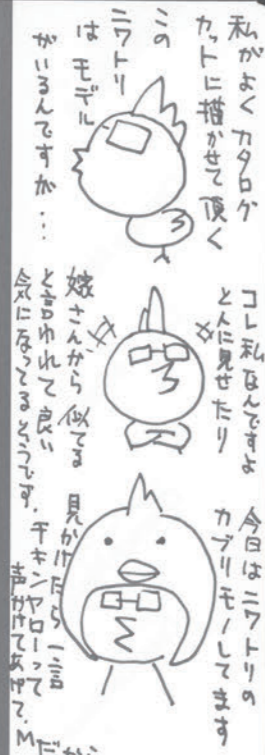 私がよくカタログ
カットに描かせて頂く
この
ニワトリ
は モデル
がいるんですが…
コレ私なんですよ
と人に見せたり
嫁さんから 似てる
と言われて良い
気になってるそうです。
今日はニワトリの
カブリモノしてます
見かけたら一言
チキンヤローって
声かけてあげて。